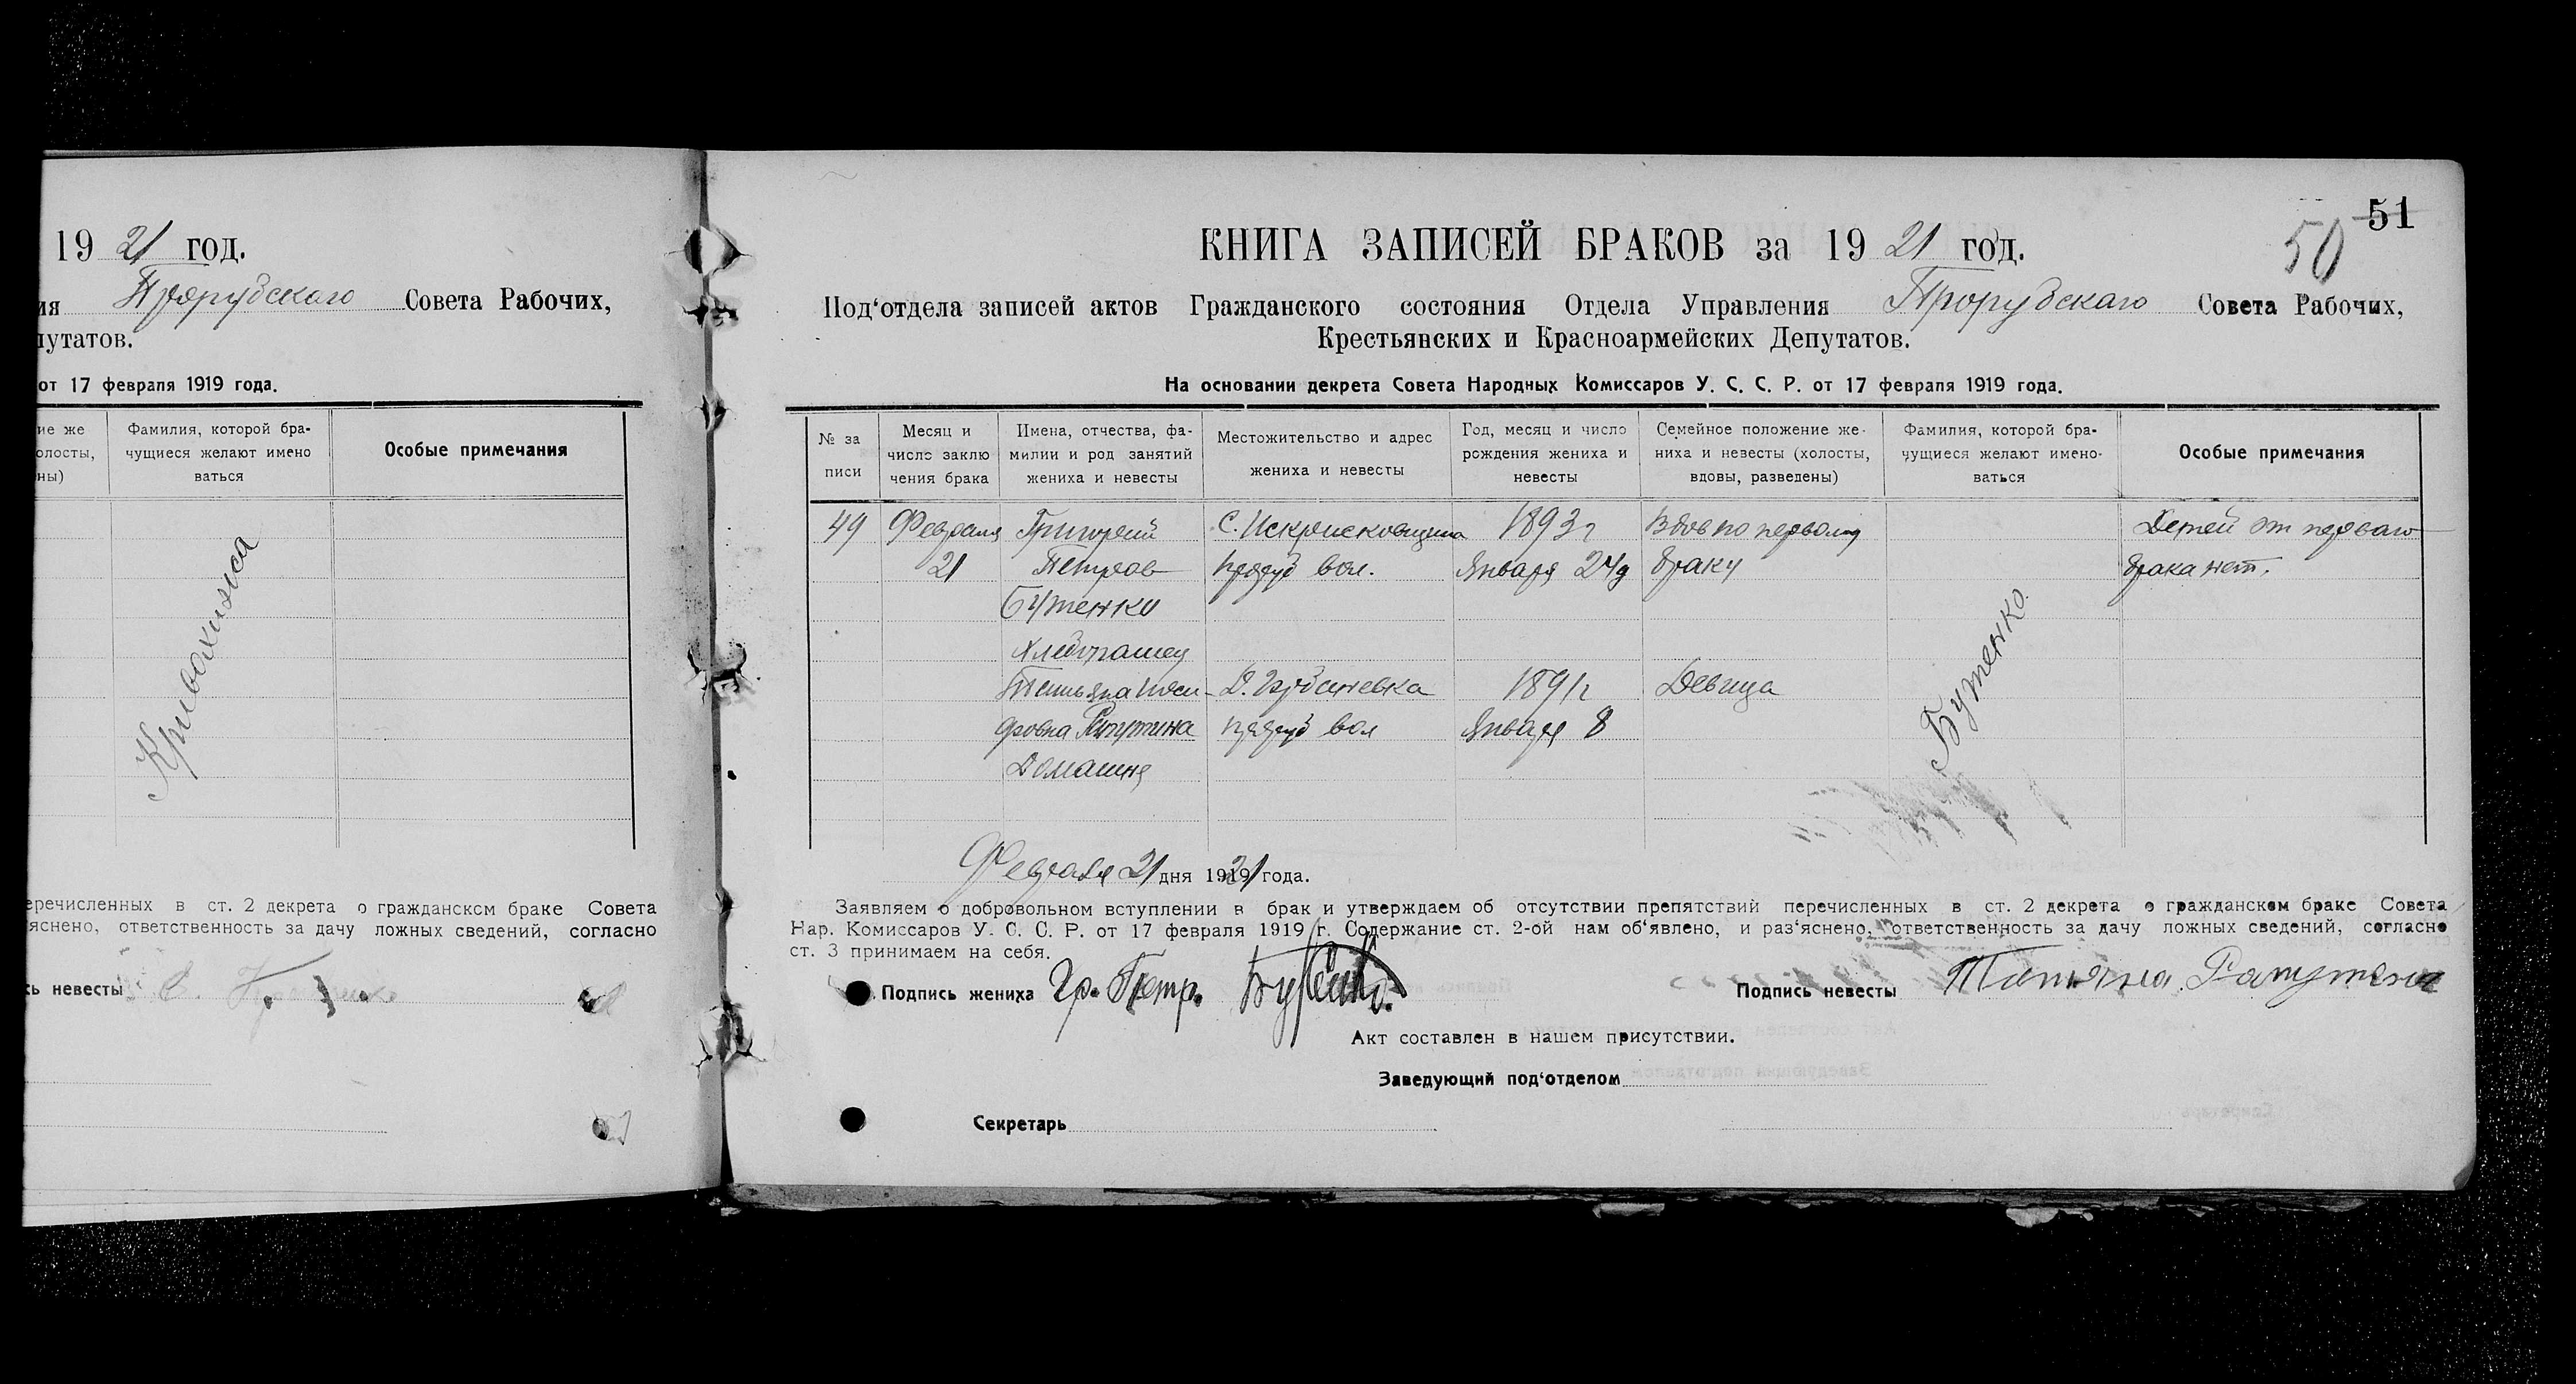 1921 год.
ия Прорубскаго Совета Рабочих,
путатов.
от 17 февраля 1919 года.
ие же
олосты,
ны)
Фамилия, которой бра-
чущиеся желают имено
ваться
Особые примечания
еречисленных в ст. 2 декрета о гражданском браке Совета
яснено, ответственность за дачу ложных сведений, согласно
ь невесты
51
50
КНИГА ЗАПИСЕЙ БРАКОВ за 1921 год.
Под‘отдела записей актов Гражданского состояния Отдела Управления Прорубскаго Совета Рабочих,
Крестьянских и Красноармейских Депутатов.
На основании декрета Совета Народных Комиссаров У. С. С. Р. от 17 февраля 1919 года.
№ за
писи
Месяц и
число заклю
чения брака
Имена, отчества, фа-
милии и род занятий
жениха и невесты
Местожительство и адрес
жениха и невесты
Год, месяц и число
рождения жениха и
невесты
Семейное положение же-
ниха и невесты (холосты,
вдовы, разведены)
Фамилия, которой бра-
чущиеся желают имено-
ваться
Особые примечания
49 Февраля Григорий С. Искрисковщина 1893 г Вдов по первому Детей от перваго
21 Петров Проруб вол. Января 24 д браку брака нет.
Бутенко
Хлебопашец
Татьяна Д. 1891 г Девица
Рапутина Проруб вол Января 8
Домашня
Бутенко.
Февраля 21 дня 1921 года.
Заявляем о добровольном вступлении в брак и утверждаем об отсутствии препятствий перечисленных в ст. 2 декрета о гражданском браке Совета
Нар. Комиссаров У. С. С. Р. от 17 февраля 1919 г. Содержание ст. 2-ой нам об‘явлено, и раз‘яснено, ответственность за дачу ложных сведений, согласно
ст. 3 принимаем на себя.
Подпись жениха Гр. Петр. Бутенко. Подпись невесты Татьяна Рапутена
Акт составлен в нашем присутствии.
Заведующий под‘отделом
Секретарь